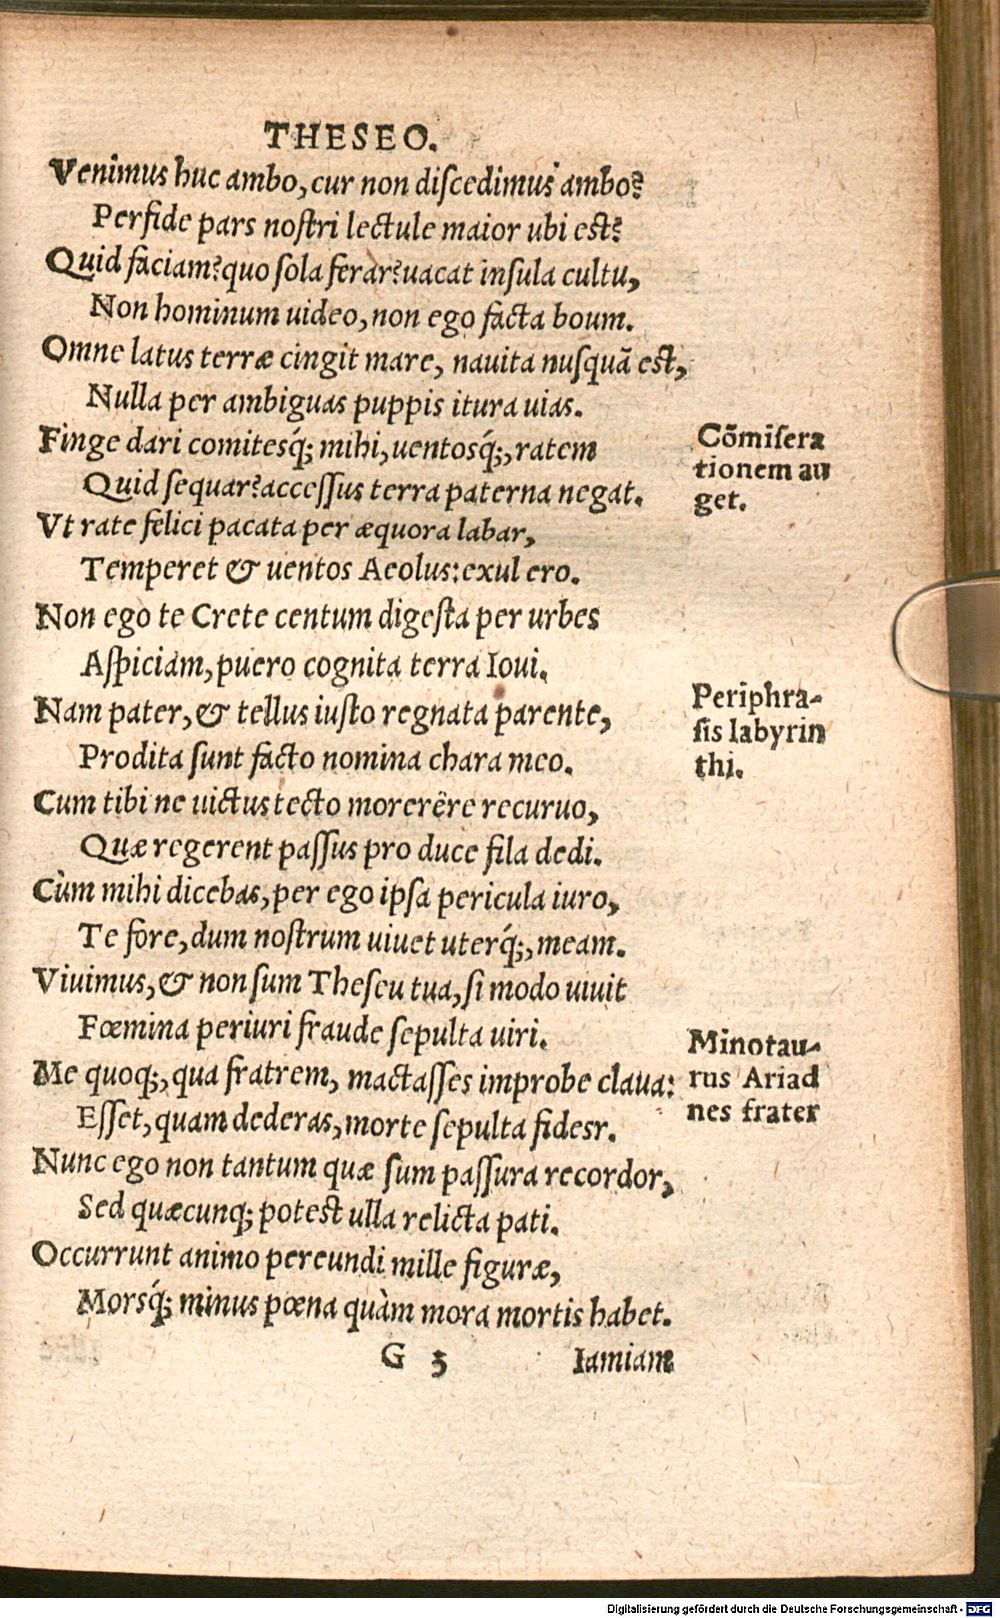 THESEO.
Venimus huc ambo, cur non diſcedimus ambo?
Perfide pars noſtri lectule maior ubi est?
Quid faciam? quo sola ferar? uacat inſula cultu,
Non hominum uideo, non ego facta boum.
Omne latus terræ cingit mare, nauita nuſquã est,
Nulla per ambiguas puppis itura uias.
Finge dari comitesq́; mihi, uentosq́;, ratem
Quid sequar? acceſſus terra paterna negat.
Vt rate felici pacata per æquora labar,
Temperet & uentos Aeolus: exul ero.
Non ego te Crete centum digeſta per urbes
Aſpiciam, puero cognita terra Ioui.
Nam pater, & tellus iuſto regnata parente,
Prodita ſunt facto nomina chara meo.
Cum tibi ne uictus tecto morerêre recuruo,
Quæ regerent paſſus pro duce fila dedi.
Cùm mihi dicebas, per ego ipſa pericula iuro,
Te fore, dum noſtrum uiuet uterq́;, meam.
Viuimus, & non ſum Theſeu tua, ſi modo uiuit
Fœmina periuri fraude ſepulta uiri.
Me quoq;, qua fratrem, mactaſſes improbe claua:
Eſſet, quam dederas, morte ſepulta fidesr.
Nunc ego non tantum quæ ſum paſſura recordor,
Sed quæcunq; potest ulla relicta pati.
Occurrunt animo pereundi mille figuræ,
Morsq́; minus pœna quàm mora mortis habet.
G 3 Iamiam
Cõmiſera
tionem au
get.
Periphra-
ſis labyrin
thi.
Minotau-
rus Ariad
nes frater
Digitalisierung gefördert durch die Deutsche Forschungsgemeinschaft - DFG